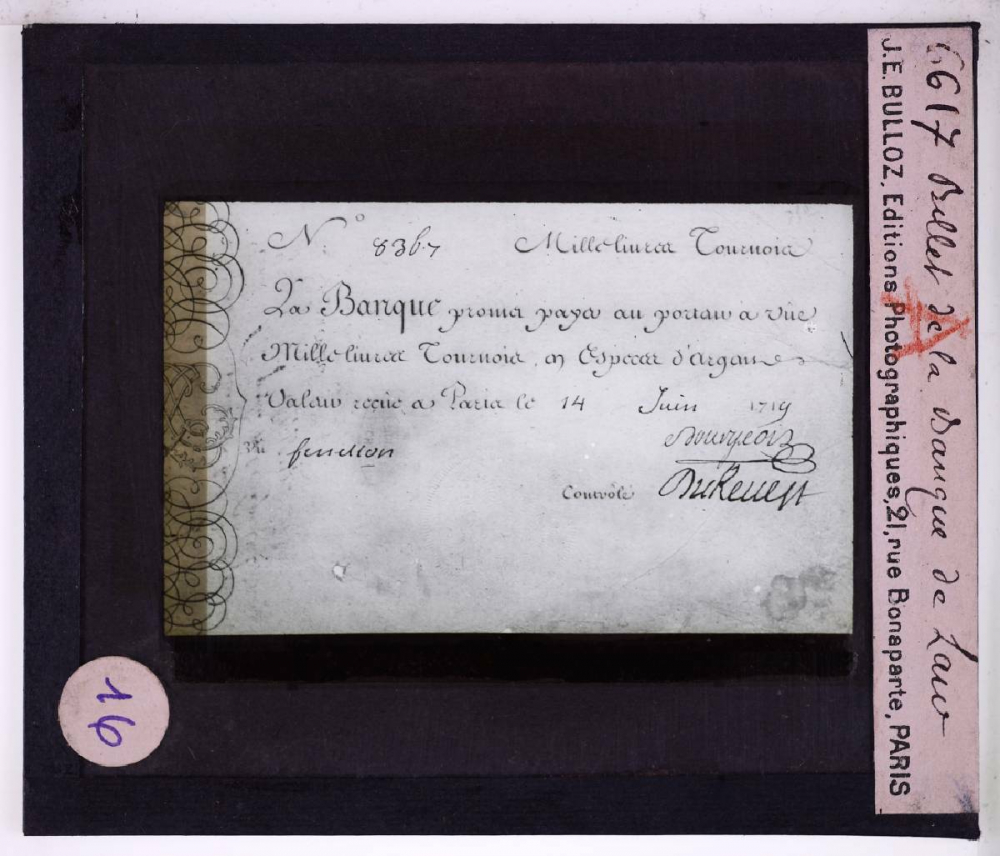 N.° 8367 Mille livres Tournois
La Banque promet payer au porteur a vüe
Mille livres Tournois, en Especes d'Argent
valeur reçüe a Paris le 14 Juin 1719
fenelon
Bourgeois
Controlé Durevest
6617 Billet de la Banque de Law
J.E. BULLOZ, Editions Photographiques, 21, rue Bonaparte, PARIS
16